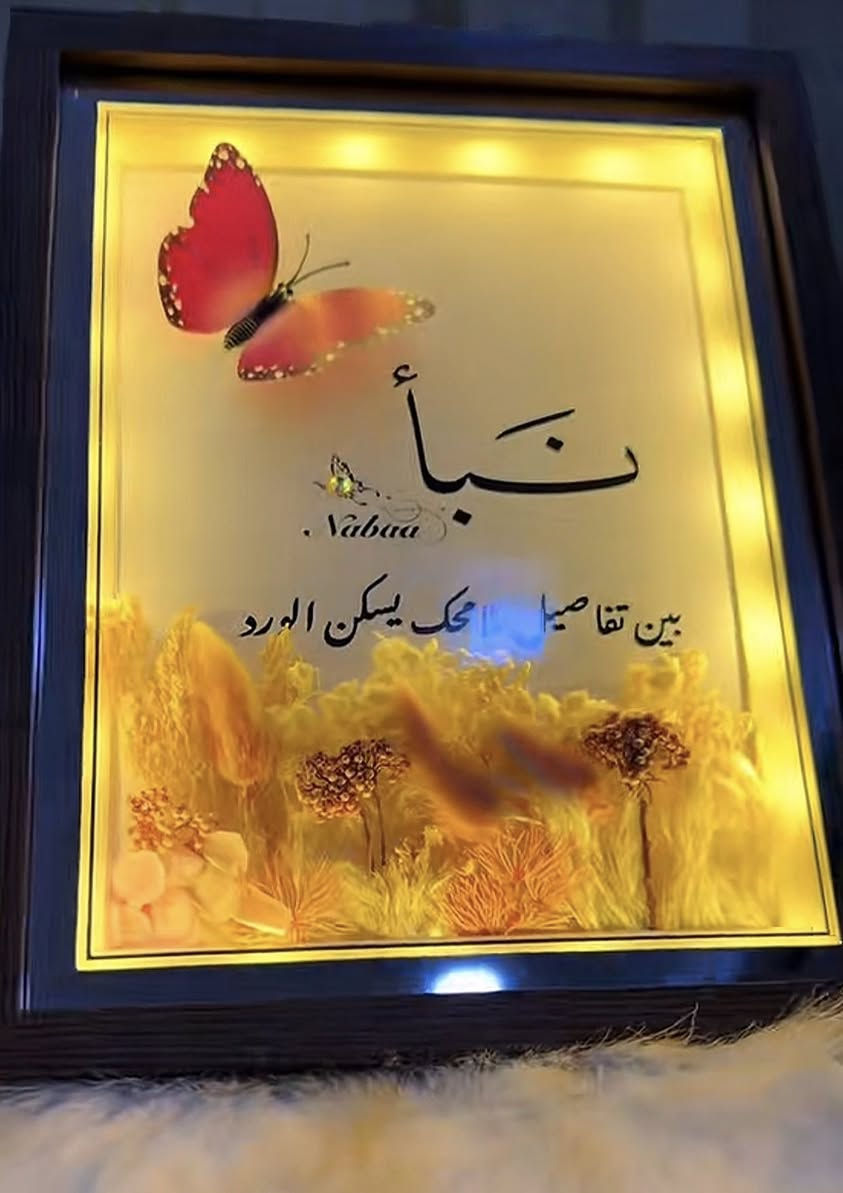 نَبأ
Nabaa
بين تفاصيل يسكن الورد